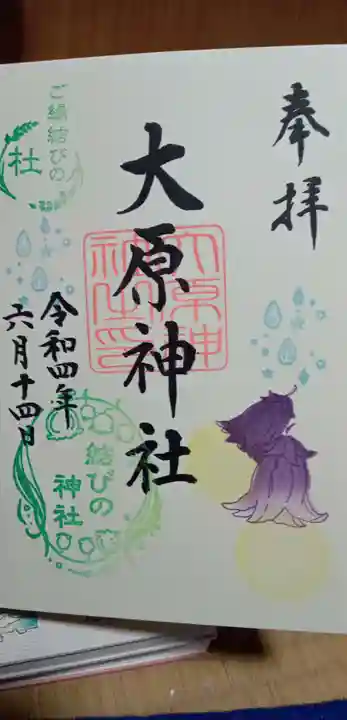 奉拝
大原神社
大原神社之印
令和四年
六月十四日
ご縁結びの
杜
結びの
神社